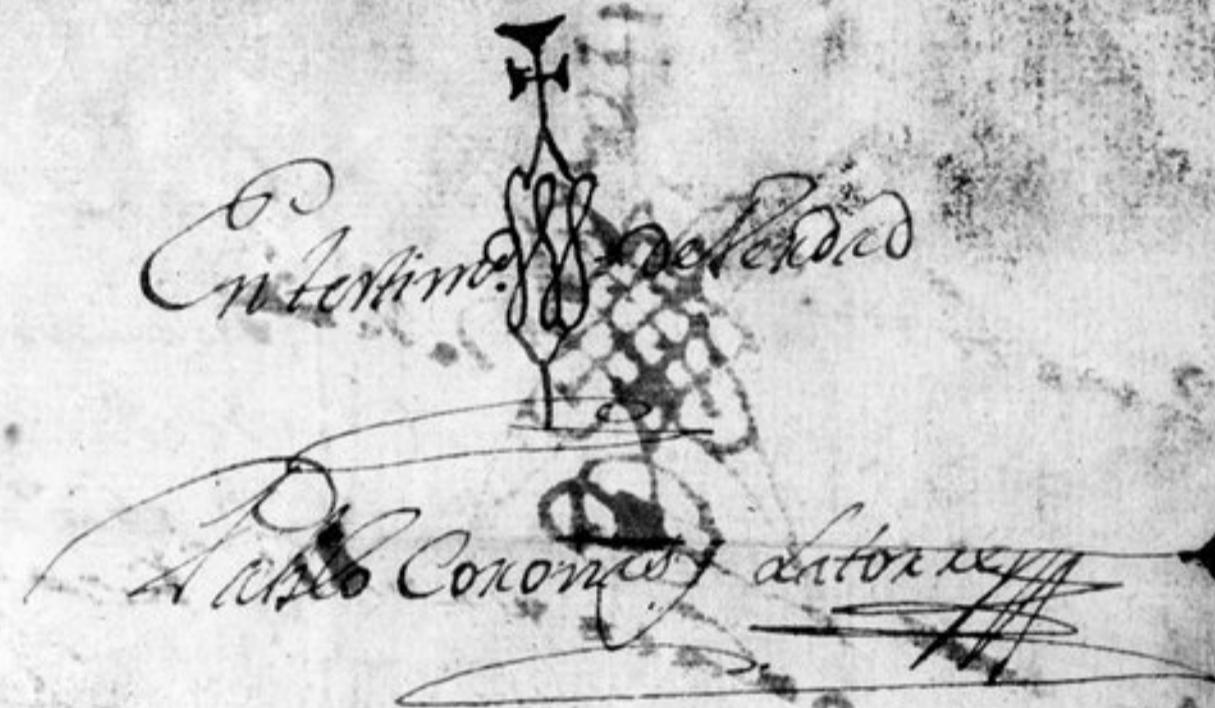 En testimo. de Verdad
Pablo Coronas y Latorre